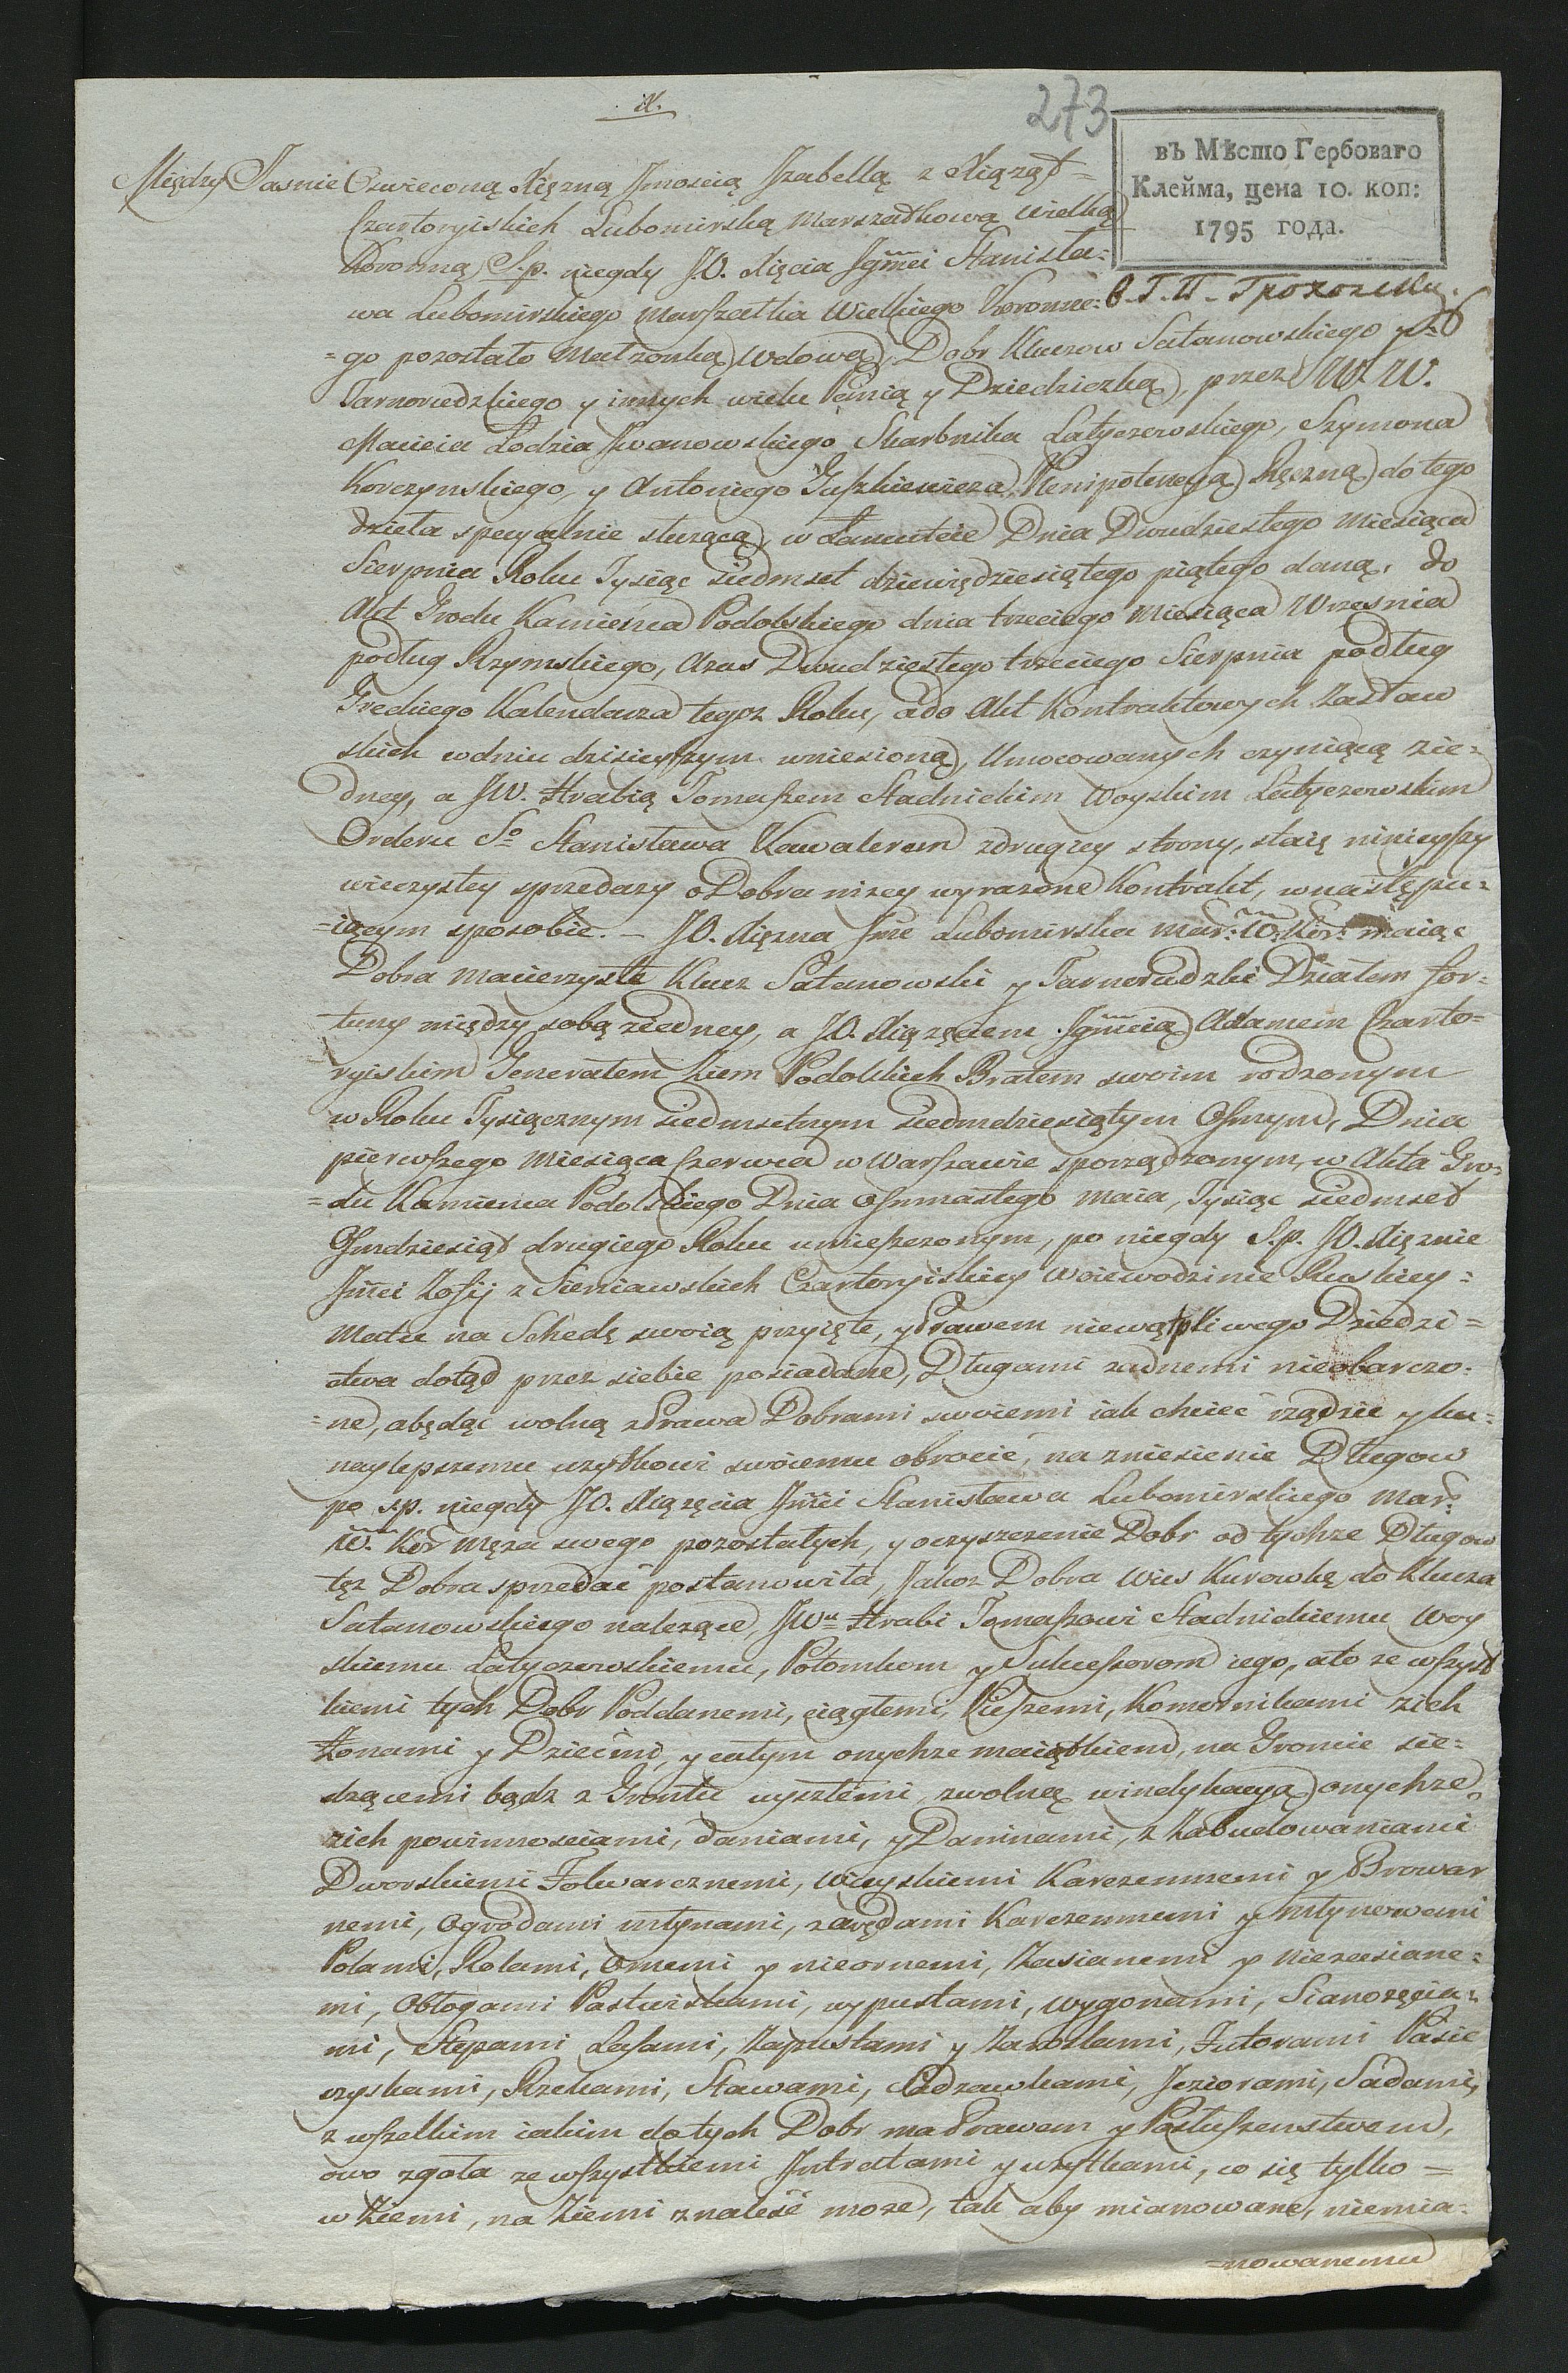 273
въ Мѣсто Гербоваго
Клейма, цена 10. коп:
1795 года.
Między Jasnie Oswieconą Xięzną Jmoscią Izabellą z Xiążąt=
Czartoryiskich Lubomirską Marszałkową Wielką
Koronną, S.p. niegdy JO. Xięcia Jgm̃ci Stanisła:
wa Lubomirskiego Marszałka Wielkiego Koronne:
=go pozostało Małzonką Wdową, Dobr Kluczow Satanowskiego y
Tarnorudzkiego y innych wielu Panią y Dziedziczką, przez WW.
Macieia Łodzia Iwanowskiego Skarbnika Latyczewskiego, Szymona
Korczynskiego, y Antoniego Juszkiewicza, Plenipotencyą Ręczną do tego
dzieła specyalnie słuzącą, w Łancucie Dnia Dwudziestego Miesiąca
Sierpnia Roku Tysiąc siedmset dziewiędziesiątego piątego daną, do
Akt Grodu Kamieńca Podolskiego dnia trzeciego Miesiąca Wrzesnia
podług Rzymskiego, a zas Dwudziestego trzeciego Sierpnia podług
Greckiego Kalendarza tegoz Roku, a do Akt Kontraktowych Zasław
skich w dniu dzisieyszym wniesioną, Umocowanych czyniącą z ie:
dney, a JW. Hrabią Tomaszem Stadnickim Woyskim Latyczewskim
Orderu So Stanisława Kawalerem z drugiey strony, staię ninieyszy
wieczystey sprzedazy o Dobra nizey wyrazone Kontrakt, w następu:
=iącym sposobie. – JO. Xięzna Jme Lubomirska Mar: W: Kor: maiąc
Dobra Macierzyste Klucz Satanowski y Tarnorudzki Działem for:
tuny między sobą z iedney, a JO. Xiązęciem Jgm̃cią Adamem Czarto=
ryiskim Generałem Ziem Podolskich Bratem swoim rodzonym
w Roku Tysiącznym siedmsetnym siedmdziesiątym Osmym, Dnia
pierwszego Miesiąca Czerwca w Warszawie sporządzonym, w Akta Gro:
=du Kamienca Podolskiego Dnia Osmnastego Maia, Tysiąc siedmset
Osmdziesiąt drugiego Roku umieszczonym, po niegdy S.p. JO. Xięznie
Jm̃ci Zofij z Sieniawskich Czartoryiskiey Woiewodzinie Ruskiey:
Matce na Schedę swoią przyięte, y Prawem niewątpliwego Dziedzi=
ctwa dotąd przez siebie posiadane, Długami zadnemi nieobarczo:
=ne, a będąc wolną z Prawa Dobrami swoiemi iak chcieć rządzic y ku:
naylepszemu uzytkowi swoiemu obrocić, na zniesienie Długow
po s.p. niegdy JO. Xiązęcia Jm̃ci Stanisława Lubomirskiego Mar:
W. Kor Męza swego pozostałych, y oczyszczenie Dobr od tychze Długow
tęz Dobra sprzedać postanowiła, Jakoz Dobra Wies Kurowkę do Klucza
Satanowskiego nalezące, JWu Hrabi Tomaszowi Stadnickiemu Woy
skiemu Latyczewskiemu, Potomkom y Sukcessorom iego, a to ze wszyst
kiemi tych Dobr Poddanemi, ciągłemi, Pieszemi, Komornikami z ich
Zonami y Dziećmi, y całym onychze maiątkiem, na Groncie sie:
dzącemi bądz z Grontu wyszłemi, z wolną windykacyą onychze,
z ich powinnosciami, daniami, y Daninami, z Zabudowaniami
Dworskiemi Folwarcznemi, Wieyskiemi Karczemnemi y Browar
nemi, Ogrodami młynami, zarędami Karczemnemi y młynowemi
Polami, Rolami, Ornemi y nieornemi, Zasianemi y niezasiane:
mi, Obłogami Pastwiskami, wypustami, wygonami, Sianozęcia:
mi, Stepami Lasami, Zapustami y Zaroslami, Futorami Pasie
czyskami, Rzekami, Stawami, Sadzawkami, Jeziorami, Sadami,
z wszelkim iakim do tych Dobr ma Prawem y Posłuszenstwem,
owo zgoła ze wszystkiemi Intratami y uzytkami, co się tylko =
w Ziemi, na Ziemi znaleść moze, tak aby mianowane, niemia:
=nowanemu